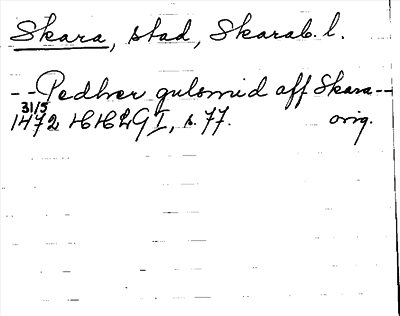 Skara, stad, Skarab. l.
--Pedher gulsmid aff Skara--
31/5
1472 HHLG I, s. 77. orig.